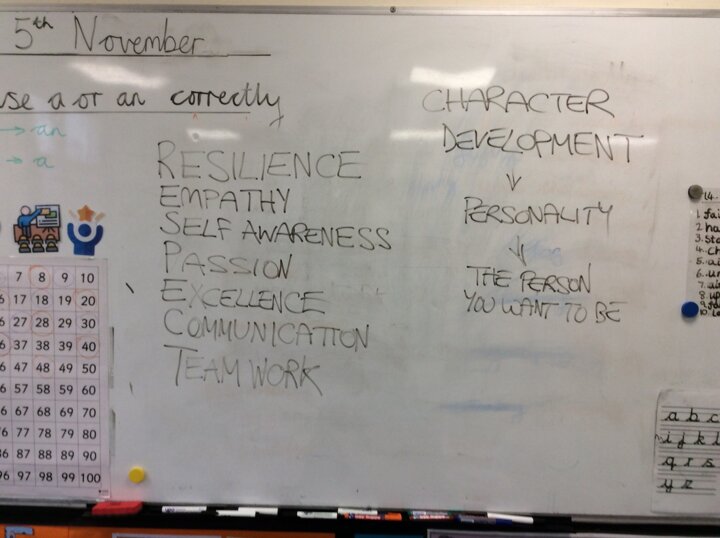 5th November
use a or an correctly
→ an
→ a
RESILIENCE
EMPATHY
SELF AWARENESS
PASSION
EXCELLENCE
COMMUNICATION
TEAM WORK
CHARACTER
DEVELOPMENT
↓
PERSONALITY
↓
THE PERSON
YOU WANT TO BE
7 8 9 10
17 18 19 20
27 28 29 30
37 38 39 40
47 48 49 50
57 58 59 60
67 68 69 70
77 78 79 80
87 88 89 90
96 97 98 99 100
14.
a b c
i j k l
q r s
y z